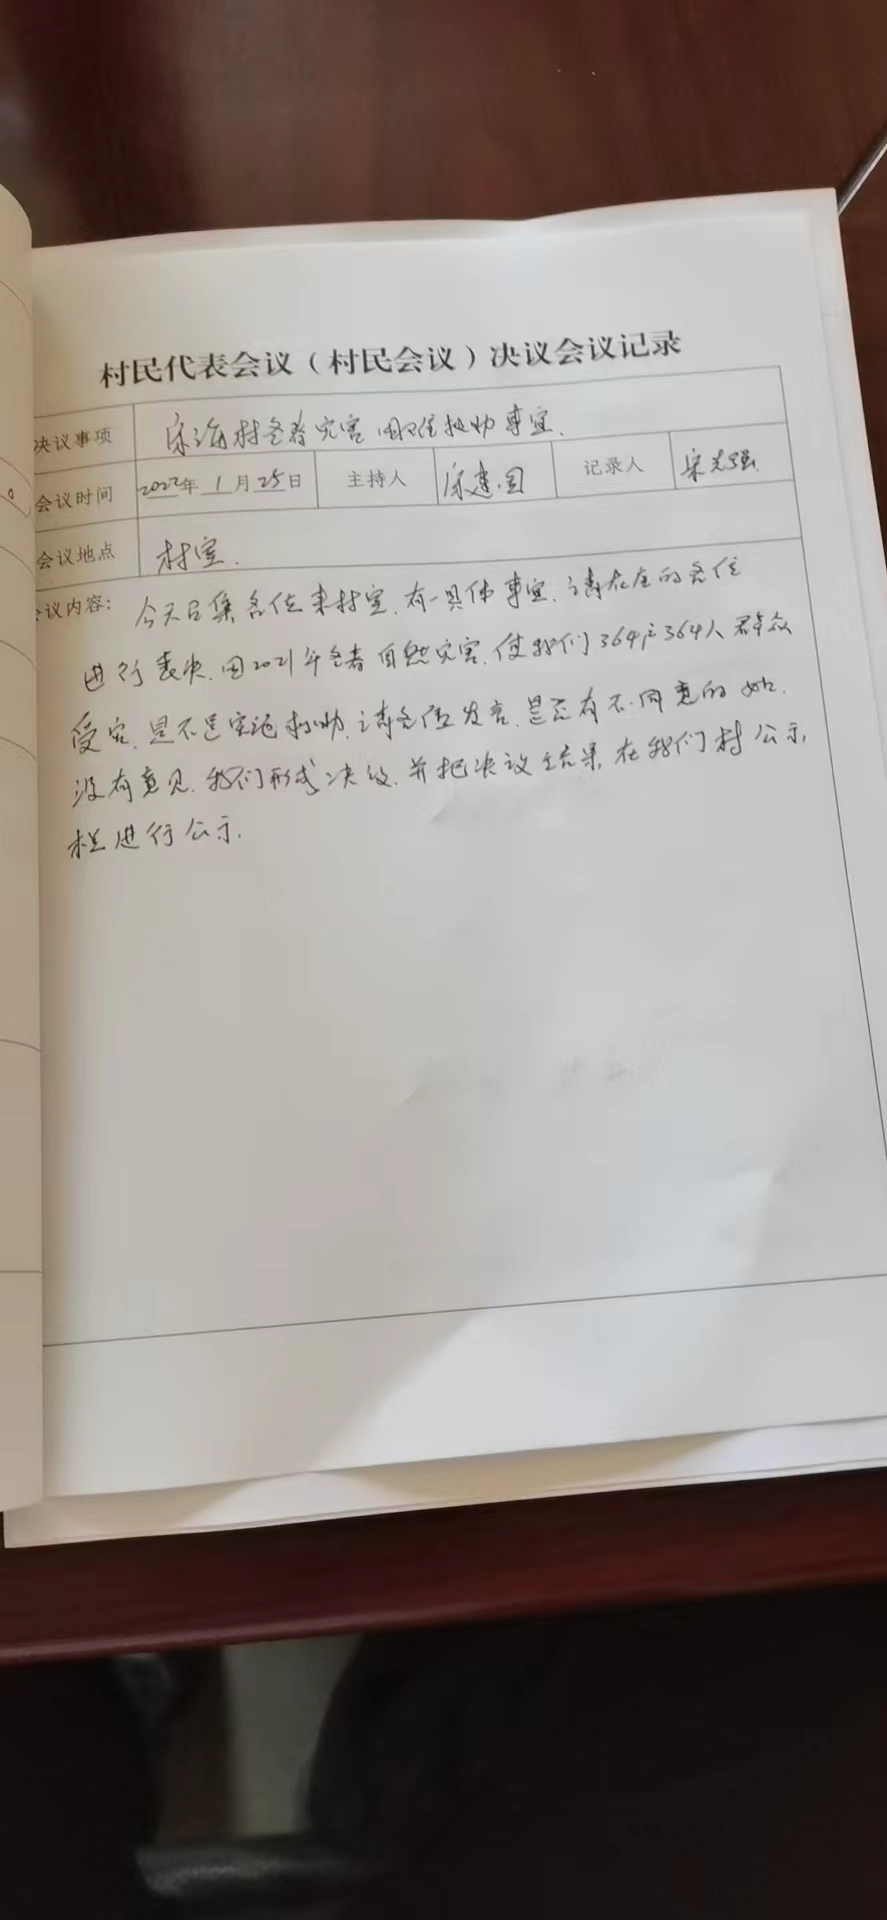 村民代表会议（村民会议）决议会议记录
决议事项 宋海村冬春灾害困难救助事宜.
会议时间 2022年 1 月 25日 主持人 宋建国 记录人 宋先强
会议地点 村室.
会议内容： 今天召集各位来村室.有一具体事宜.请在座的各位
进行表决.因2021年冬春自然灾害.使我们364户364人群众
受灾.是不是实施救助.请各位发言.是否有不同意的
没有意见.我们形成决议.并把决议结果在我们村公示
栏进行公示.